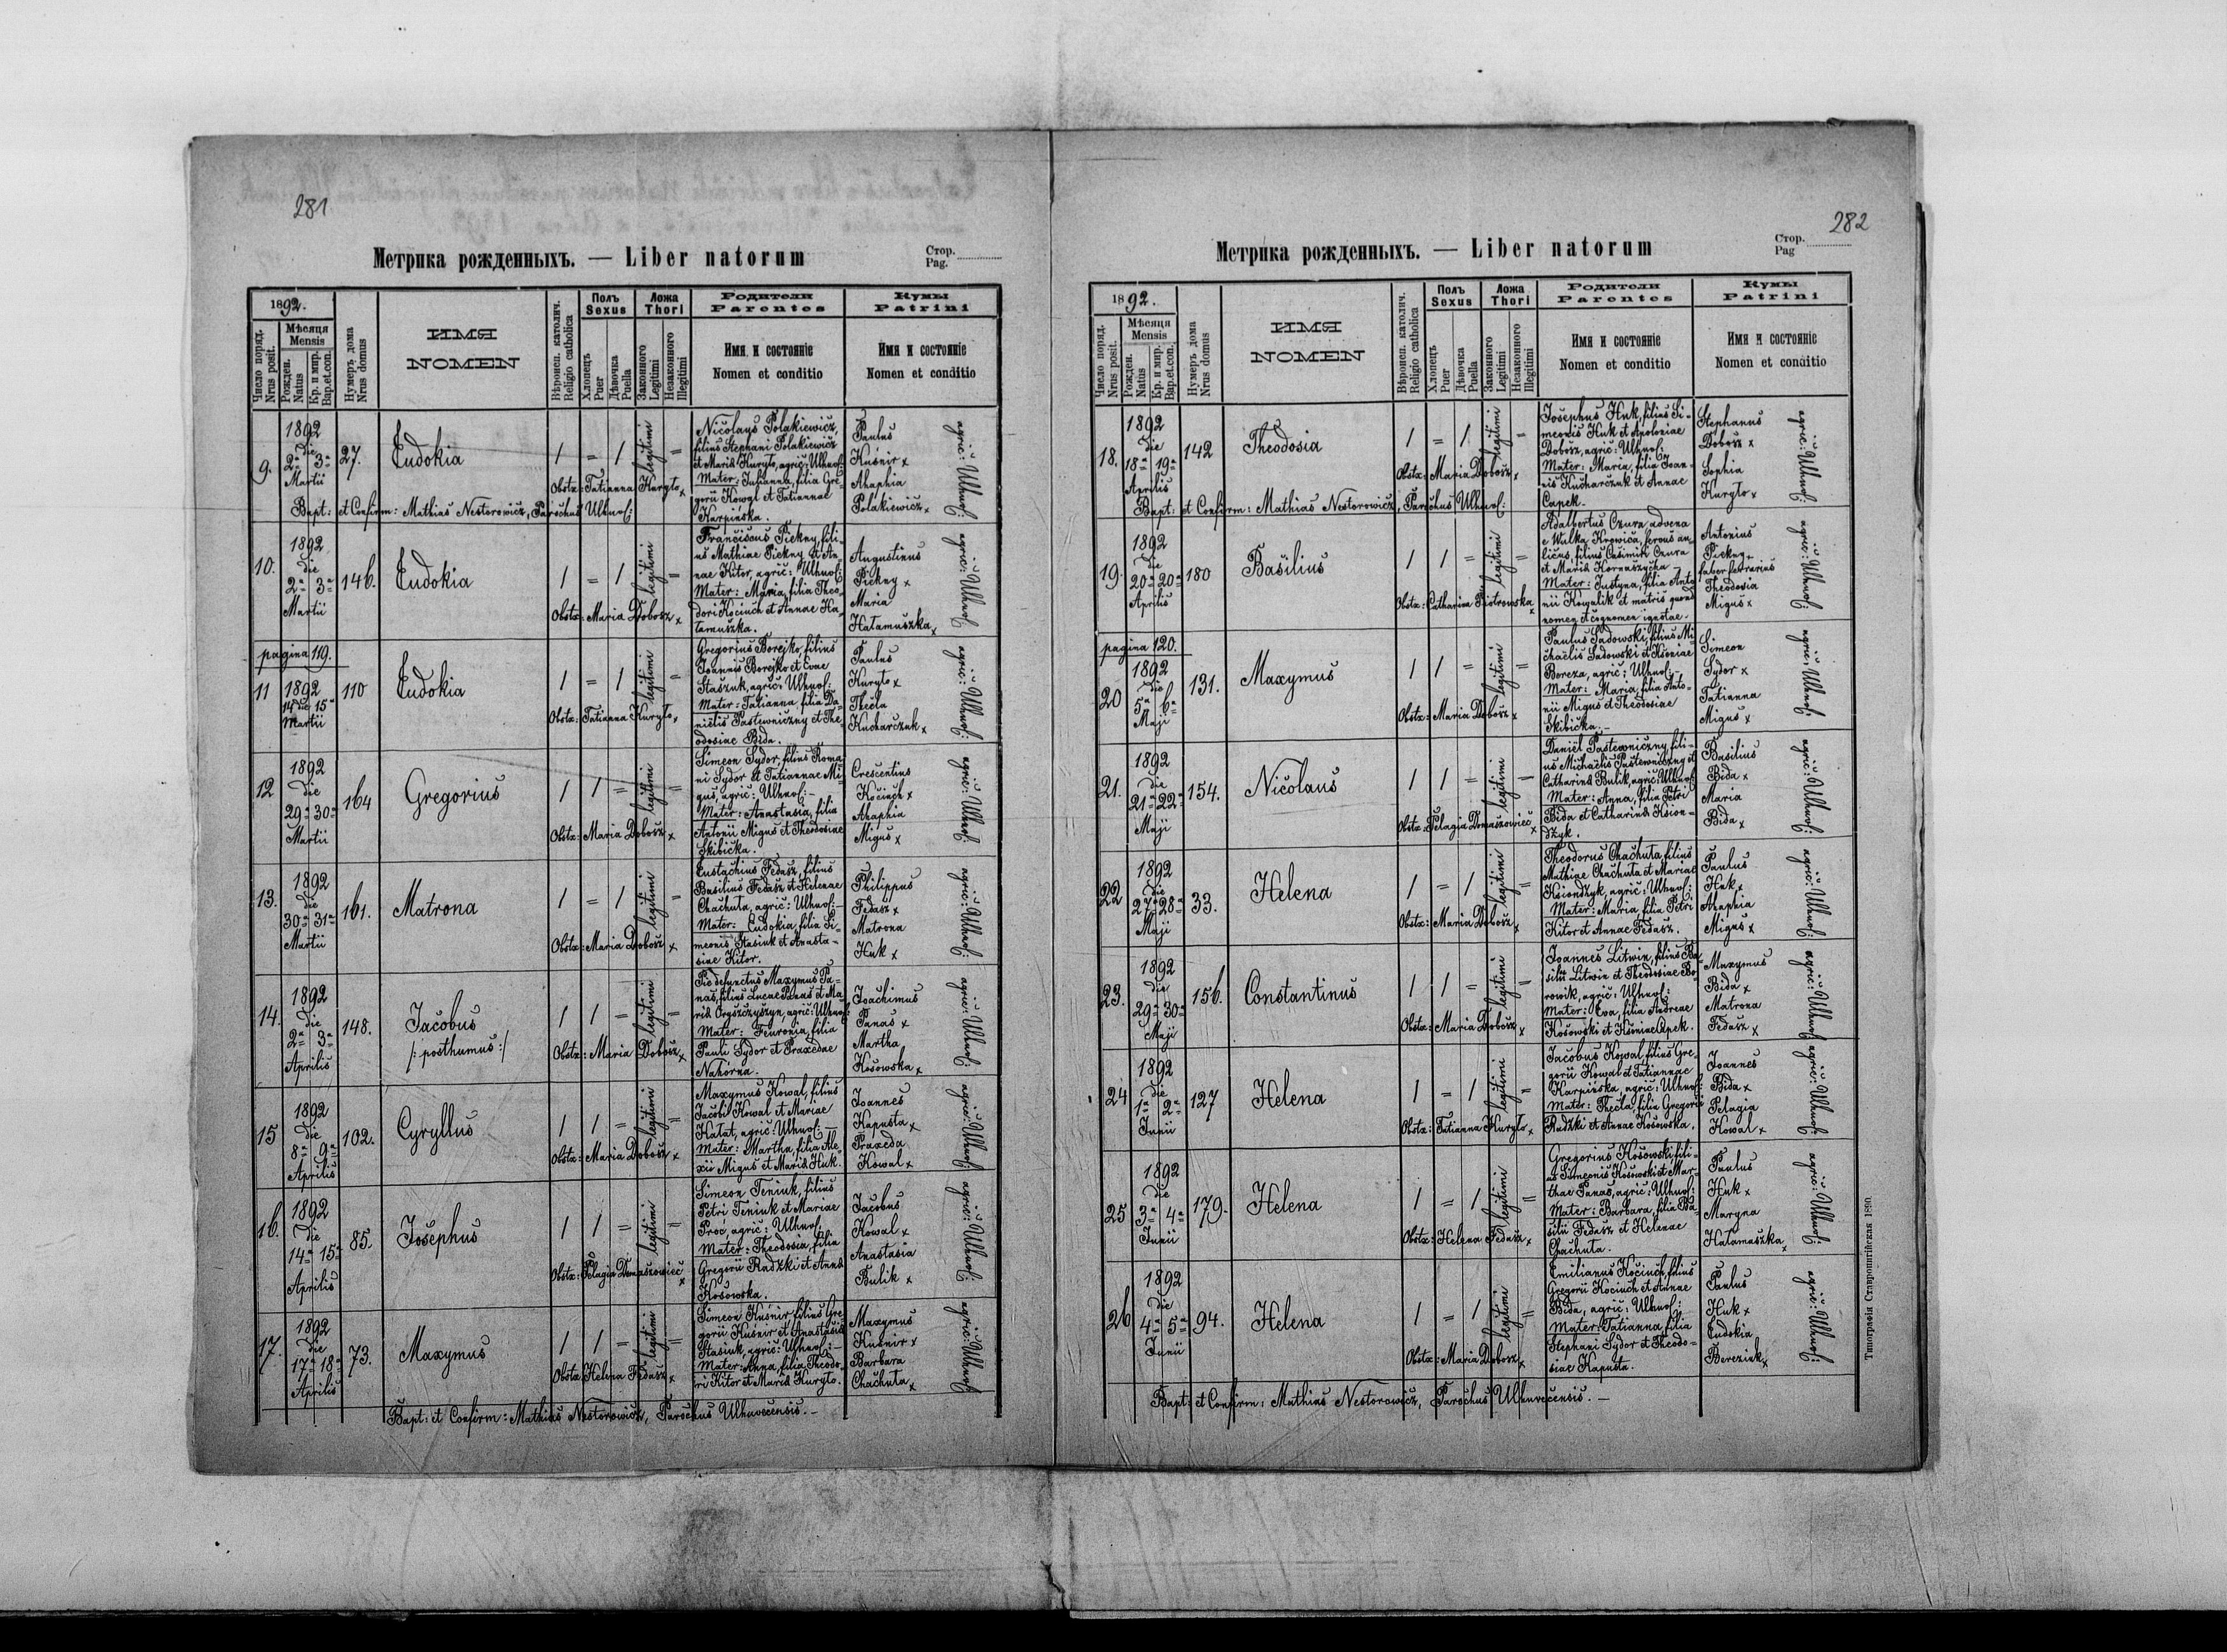 281
Метрика рожденныхъ. — Liber natorum
Стор.
Pag.
1892.
Число поряд.
Nrus posit.
Мѣсяця
Mensis
Рожден.
Natus
Кр. и мир.
Bap.et.con.
Нумеръ дома
Nrus domus
ИМЯ
NOMEN
Вѣроисп. католич.
Religio catholica
Полъ
Sexus
Хлопецъ
Puer
Дѣвочка
Puella
Ложа
Thori
Законного
Legitimi
Незаконного
Illegitimi
Родители
Parentes
Имя и состояніе
Nomen et conditio
Кумы
Patrini
Имя и состояніе
Nomen et conditio
9.
1892
die
2a 3a
Martii
27.
Eudokia
1 = 1 legitimi =
Obstx: Tatianna Kuryło x
Nicolays Polakiewicz,
filius Stephani Polakiewicz
et Mariä Kuryło, agric: Uhnof:
Mater: Julianna, filia Gre-
gorii Kowal et Tatiannae
Karpińska.
Paulus
Kuśnir x
Ahaphia
Polakiewicz x
agric: Uhnof:
Bapt: et Confirm: Mathias Nestorowicz, Parochus Ulhnof:
10.
1892
die
2a 3a
Martii
146.
Eudokia
1 = 1 legitimi =
Obstx: Maria Dobosz x
Franciscus Piekny, fili-
us Mathiae Piekny et An-
nae Kitor, agric: Ulhnof:
Mater: Maria, filia Theo-
dori Kociuch et Annae Ha-
tamuszka.
Augustinus
Piekny x
Maria
Hatamuszka x
agric: Ulhnof:
pagina 119.
11
1892
14 die 15
Martii
110
Eudokia
1 = 1 legitimi =
Obstx: Tatianna Kuryło x
Gregorius Borejko, filius
Joannis Borejko et Evae
Staszuk, agric: Ulhnof:
Mater: Tatianna filia Da-
nielis Pastewniczny et The-
odosiae Bida.
Paulus
Kuryło x
Thecla
Kucharczuk x
agric: Ulhnof:
12
1892
die
29a 30a
Martii
164
Gregorius
1 1 = legitimi =
Obstx: Maria Dobosz x
Simeon Sydor, filius Roma
ni Sydor et Tatiannae Mi-
gus, agric: Ulhnof: -
Mater: Anastasia, filia
Antonii Migus et Theodosiae
Skibicka.
Crescentius
Kociuch x
Ahaphia
Migus x
agric: Ulhnof:
13.
1892
die
30a 31a
Martii
161.
Matrona
1 = 1 legitimi =
Obstx: Maria Dobosz x
Eustachius Fedasz, filius
Basilius Fedasz et Helenae
Chachuta, agric: Ulhnof: -
Mater: Eudokia, filia Si-
meonis Stasiuk et Anasta-
siae Kitor.
Philippus
Fedasz x
Matrona
Huk x
agric: Ulhnof:
14.
1892
die
2a 3a
Aprilis
148.
Jacobus
/: posthumus :/
1 1 = legitimi =
Obstx: Maria Dobosz x
Pie defunctus Maxymus Pa-
nas, filius Lucae Panas et Ma-
riä Oryszczyszyn, agric: Ulhnof:
Mater: Feuronia, filia
Pauli Sydor et Praxedae
Nahorna.
Joachimus
Panas x
Martha
Kosowska x
agric: Ulhnof:
15
1892
die
8a 9a
Aprilis
102.
Cyryllus
1 1 = legitimi =
Obstx: Maria Dobosz x
Maxymus Kowal, filius
Jacobi Kowal et Mariae
Hatat, agric: Ulhnof: —
Mater: Martha, filia Ale-
xii Migus et Mariä Huk.
Joannes
Kapusta x
Praxeda
Kowal x
agric: Ulhnof:
16.
1892
die
14a 15a
Aprilis
85.
Josephus
1 1 = legitimi =
Obstx: Pelagia Domaszowiec x
Simeon Teniuk, filius
Petri Teniuk et Mariae
Proc, agric: Ulhnof:
Mater: Theodosia, filia
Gregorii Radzki et Annä
Kosowska.
Jacobus
Kowal x
Anastasia
Bulik x
agric: Ulhnof:
17.
1892
die
17a 18a
Aprilis
73.
Maxymus
1 1 = legitimi =
Obstx Helena Fedasz x
Simeon Kuśnir filius Gre
gorii Kuśnir et Anastasiä
Stasiuk, agric: Ulhnof: -
Mater: Anna, filia Theodo-
ri Kitor et Mariä Kuryło.
Maxymus
Kuśnir x
Barbara
Chachuta x
agric: Ulhnof:
Bapt: et Confirm: Mathias Nestorowicz, Parochus Ulhnuvecensis. -
282
Метрика рожденныхъ. — Liber natorum
Стор.
Pag
1892.
Число поряд.
Nrus posit.
Мѣсяця
Mensis
Рожден.
Natus
Кр. и мир.
Bap.et.con.
Нумеръ дома
Nrus domus
ИМЯ
NOMEN
Вѣроисп. католич.
Religio catholica
Полъ
Sexus
Хлопецъ
Puer
Дѣвочка
Puella
Ложа
Thori
Законного
Legitimi
Незаконного
Illegitimi
Родители
Parentes
Имя и состояніе
Nomen et conditio
Кумы
Patrini
Имя и состояніе
Nomen et conditio
18.
1892
die
18a 19a
Aprilis
142
Theodosia
1 = 1 legitimi =
Obstx: Maria Dobosz x
Josephus Huk, filius Si-
meonis Huk et Apoloniae
Dobosz, agric: Ulhnof:
Mater: Maria, filia Joan-
nis Kucharczuk et Annae
Capek.
Stephanus
Dobosz x
Sophia
Kuryło x
agric: Ulhnof:
Bapt: et Confirm: Mathias Nestorowicz, Parochus Ulhnof:
19.
1892
die
20a 20a
Aprilis
180
Basilius
1 1 = legitimi =
Obstx: Catharina Piotrowska x
Adalbertus Czura advena
e Wulka Krowica, ferous an
licus, filius Casimiri Czura
et Mariä Kornaszycka -
Mater: Justyna, filia Anto
nii Kowalik et matris quoad
nomen et cognomen ignotae.
Antonius
Piekny x
faber ferrarius
Theodosia
Migus x
agric: Ulhnof:
pagina 120.
20
1892
die
5a 6a
Maji
131.
Maxymus
1 1 = legitimi =
Obstx: Maria Dobosz x
Paulus Sadowski, filius Mi
chaëlis Sadowski et Kseniae
Boreza, agric: Ulhnof: -
Mater: Maria, filia Anto-
nii Migus et Theodosiae
Skibicka. -
Simeon
Sydor x
Tatianna
Migus x
agric: Ulhnof:
21.
1892
die
21a 22a
Maji
154.
Nicolaus
1 1 = legitimi =
Obstx: Pelagia Domaszowiec x
Daniel Pastewniczny, fili-
us Michaëlis Pastewniczny et
Catharinä Bulik, agric: Ulhnof
Mater: Anna, filia Petri
Bida et Catharinä Ksion-
dzyk.
Basilius
Bida x
Maria
Bida x
agric: Ulhnof:
22
1892
die
27a 28a
Maji
33.
Helena
1 = 1 legitimi =
Obstx: Maria Dobosz x
Theodorus Chachuta, filius
Mathiae Chachuta et Mariae
Ksiondzyk, agric: Ulhnof:
Mater: Maria, filia Petri
Kitor et Annae Fedasz.
Paulus
Huk x
Ahaphia
Migus x
agric: Ulhnof:
23.
1892
die
29a 30a
Maji
156.
Constantinus
1 1 = legitimi =
Obstx: Maria Dobosz x
Joannes Litwin, filius Ba
silii Litwin et Theodosiae Bo-
rowik, agric: Ulhnof:
Mater: Eva, filia Andreae
Kosowski et Kseniae Capek.
Maxymus
Bida x
Matrona
Fedasz x
agric: Ulhnof:
24
1892
die
1a 2a
Junii
127
Helena
1 = 1 legitimi =
Obstx: Tatianna Kuryło x
Jacobus Kowal filius Gre-
gorii Kowal et Tatiannae
Karpińska, agric: Ulhnof:
Mater: Thecla, filia Gregorii
Radzki et Annae Kosowska.
Joannes
Bida x
Pelagia
Kowal x
agric: Ulhnof:
25
1892
die
3a 4a
Junii
179.
Helena
1 = 1 legitimi =
Obstx: Helena Fedasz x
Gregorius Kosowski, fili-
us Simeonis Kosowski et Mar-
thae Panas, agric: Ulhnof:
Mater: Barbara, filia Ba-
silii Fedasz et Helenae
Chachuta.
Paulus
Huk x
Maryna
Hatamaszka x
agric: Ulhnof:
26
1892
die
4a 5a
Junii
94.
Helena
1 = 1 legitimi =
Obstx: Maria Dobosz x
Emilianus Kociuch, filius
Gregorii Kociuch et Annae
Bida, agric: Ulhnof:
Mater: Tatianna, filia
Stephani Sydor et Theodo-
siae Kapusta.
Paulus
Huk x
Eudokia
Bereziuk x
agric: Ulhnof:
Bapt: et Confirm: Mathias Nestorowicz, Parochus Ulhnuvecensis. -
Типографія Ставропигійская 1890.